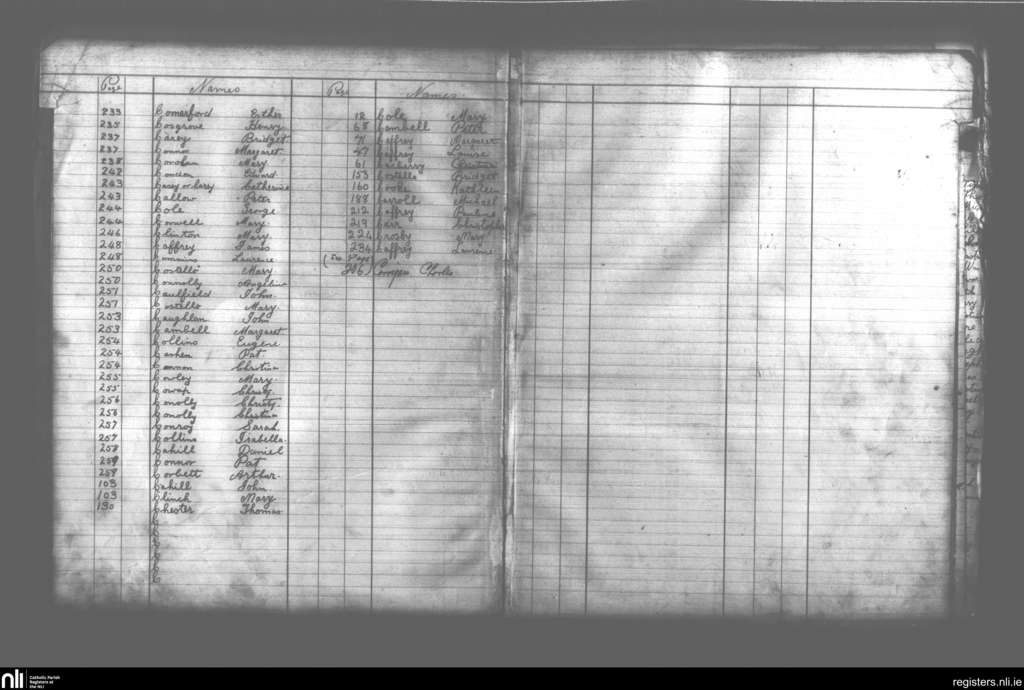 Page Names
233 Comerford Esther
235 Cosgrove Henry
237 Carey Bridget
237 Margaret
238 Conolan Mary
242 Edward
243 Casey or Carey Catherine
243 Callow Peter
244 Cole George
244 Conwell Mary
246 Clinton Mary
248 Caffrey James
248 Commins Laurence
250 Costello Mary
250 Connolly Angelina
251 Caulfield John
251 Costello Mary
253 Caughlan John
253 Cambell Margaret
254 Collins Eugene
254 Cashen Pat
254 Cannon Christina
255 Cowley Mary
255 Christy
256 Conolly Christy
256 Conolly Christina
257 Conroy Sarah
257 Collins Isabella
258 Cahill Daniel
258 Connor Pat
258 Corbett Arthur
103 Cahill John
103 Clinch Mary
130 Chester Thomas
C
C
C
C
C
C
Page Names
12 Cole Mary
68 Cambell Peter
Caffrey Margaret
47 Caffrey Louisa
61
153 Costello Bridget
160 Cooke Kathleen
188 Carroll Michael
212 Caffrey Pauline
219 Carr Christopher
224 Crosby Mary
234 Caffrey Laurence
(See Page
286) Charles
nli
Catholic Parish
Registers at
the NLI
registers.nli.ie